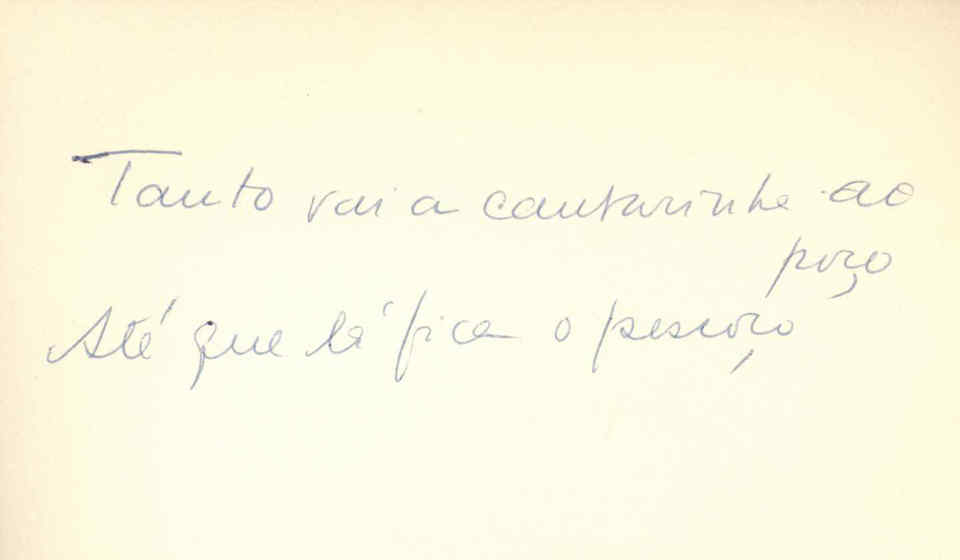 Tanto vai a cantarinha ao
poço
Até que lá fica o pescoço